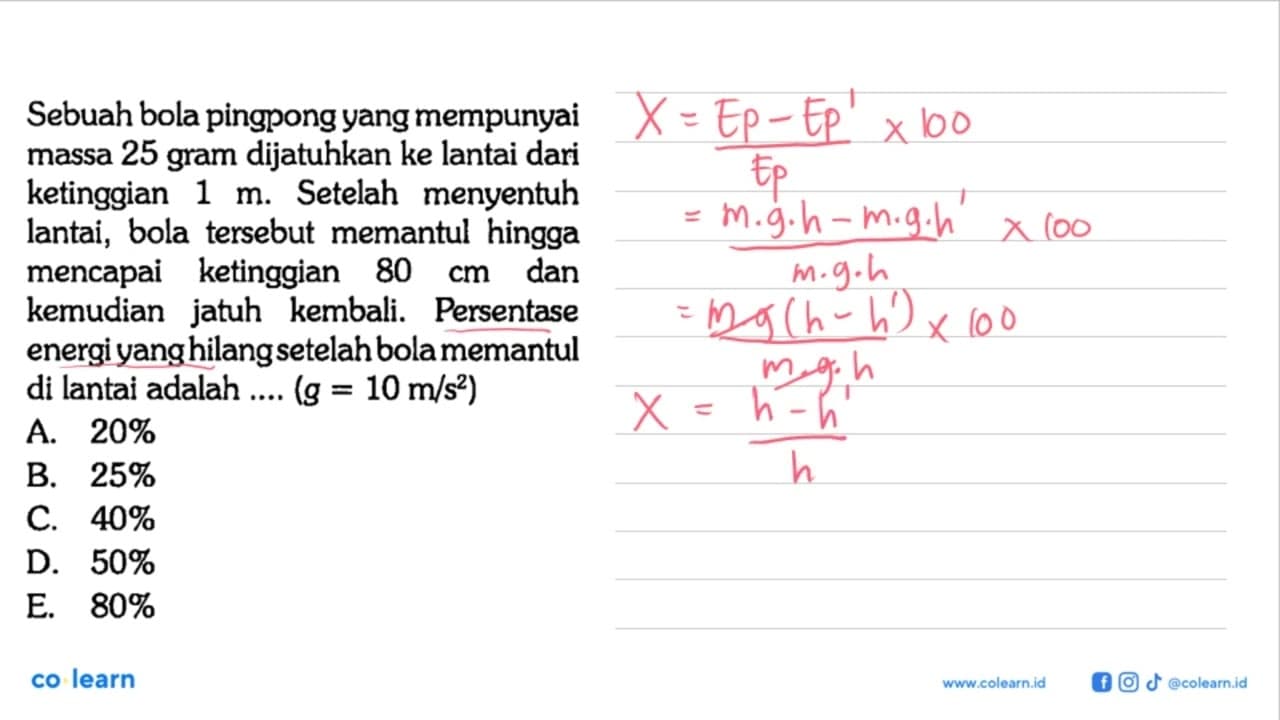 Sebuah bola pingpong yang mempunyai
massa 25 gram dijatuhkan ke lantai dari
ketinggian 1 m. Setelah menyentuh
lantai, bola tersebut memantul hingga
mencapai ketinggian 80 cm dan
kemudian jatuh kembali. Persentase
energi yang hilang setelah bola memantul
di lantai adalah .... (g = 10 m/s²)
A. 20%
B. 25%
C. 40%
D. 50%
E. 80%
X = Ep - Ep' x 100
Ep
= m.g.h - m.g.h' x 100
m.g.h
= m.g (h - h') x 100
m.g.h
X = h - h'
h
co learn
www.colearn.id
@colearn.id